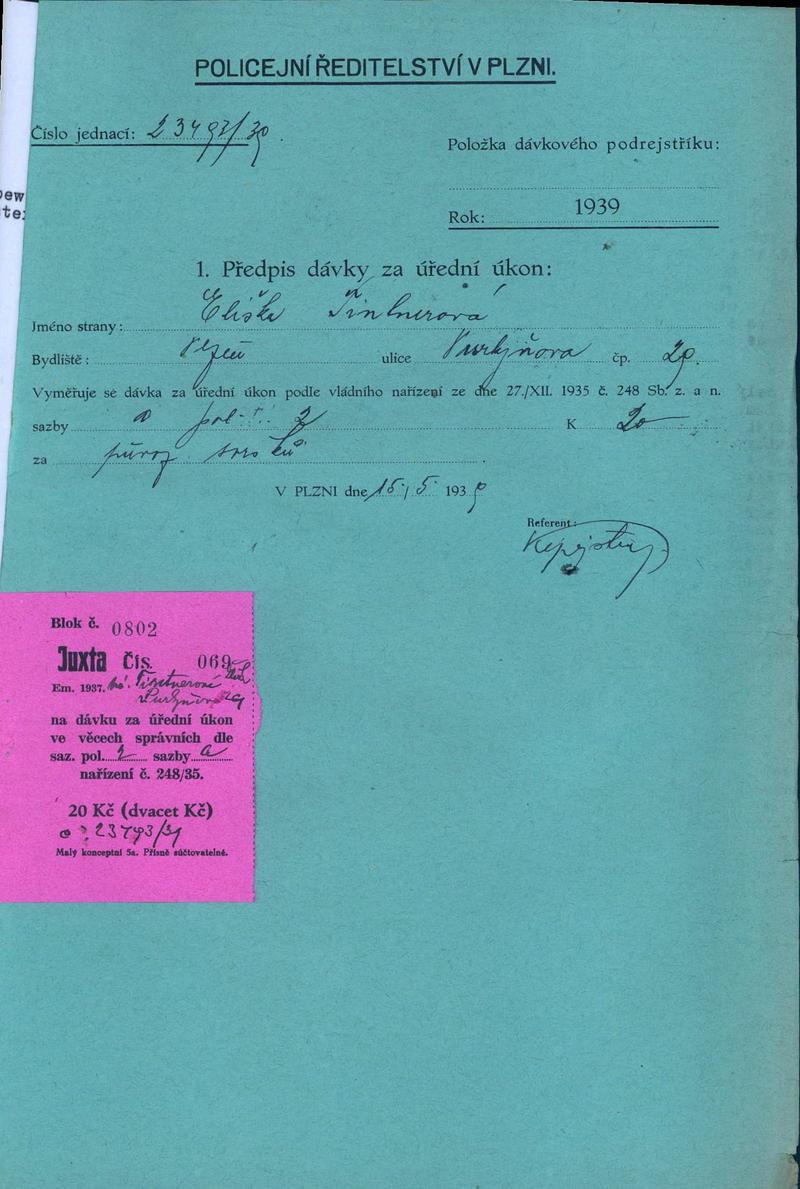 POLICEJNÍ ŘEDITELSTVÍ V PLZNI.
Číslo jednací: 23493/39
Položka dávkového podrejstříku:
Rok: 1939
1. Předpis dávky za úřední úkon:
Jméno strany: Eliška
Bydliště: Plzeň ulice Purkyňova čp. 29.
Vyměřuje se dávka za úřední úkon podle vládního nařízení ze dne 27./XII. 1935 č. 248 Sb. z. a n.
sazby a pol. 2 K 20
za
V PLZNI dne 15/5 1939
Referent:
Blok č. 0802
Juxta Čís. 069
Em. 1937.
Purkyňova 29
na dávku za úřední úkon
ve věcech správních dle
saz. pol. 2 sazby a
nařízení č. 248/35.
20 Kč (dvacet Kč)
23493/39
Malý konceptní 5a. Přísně súčtovatelné.